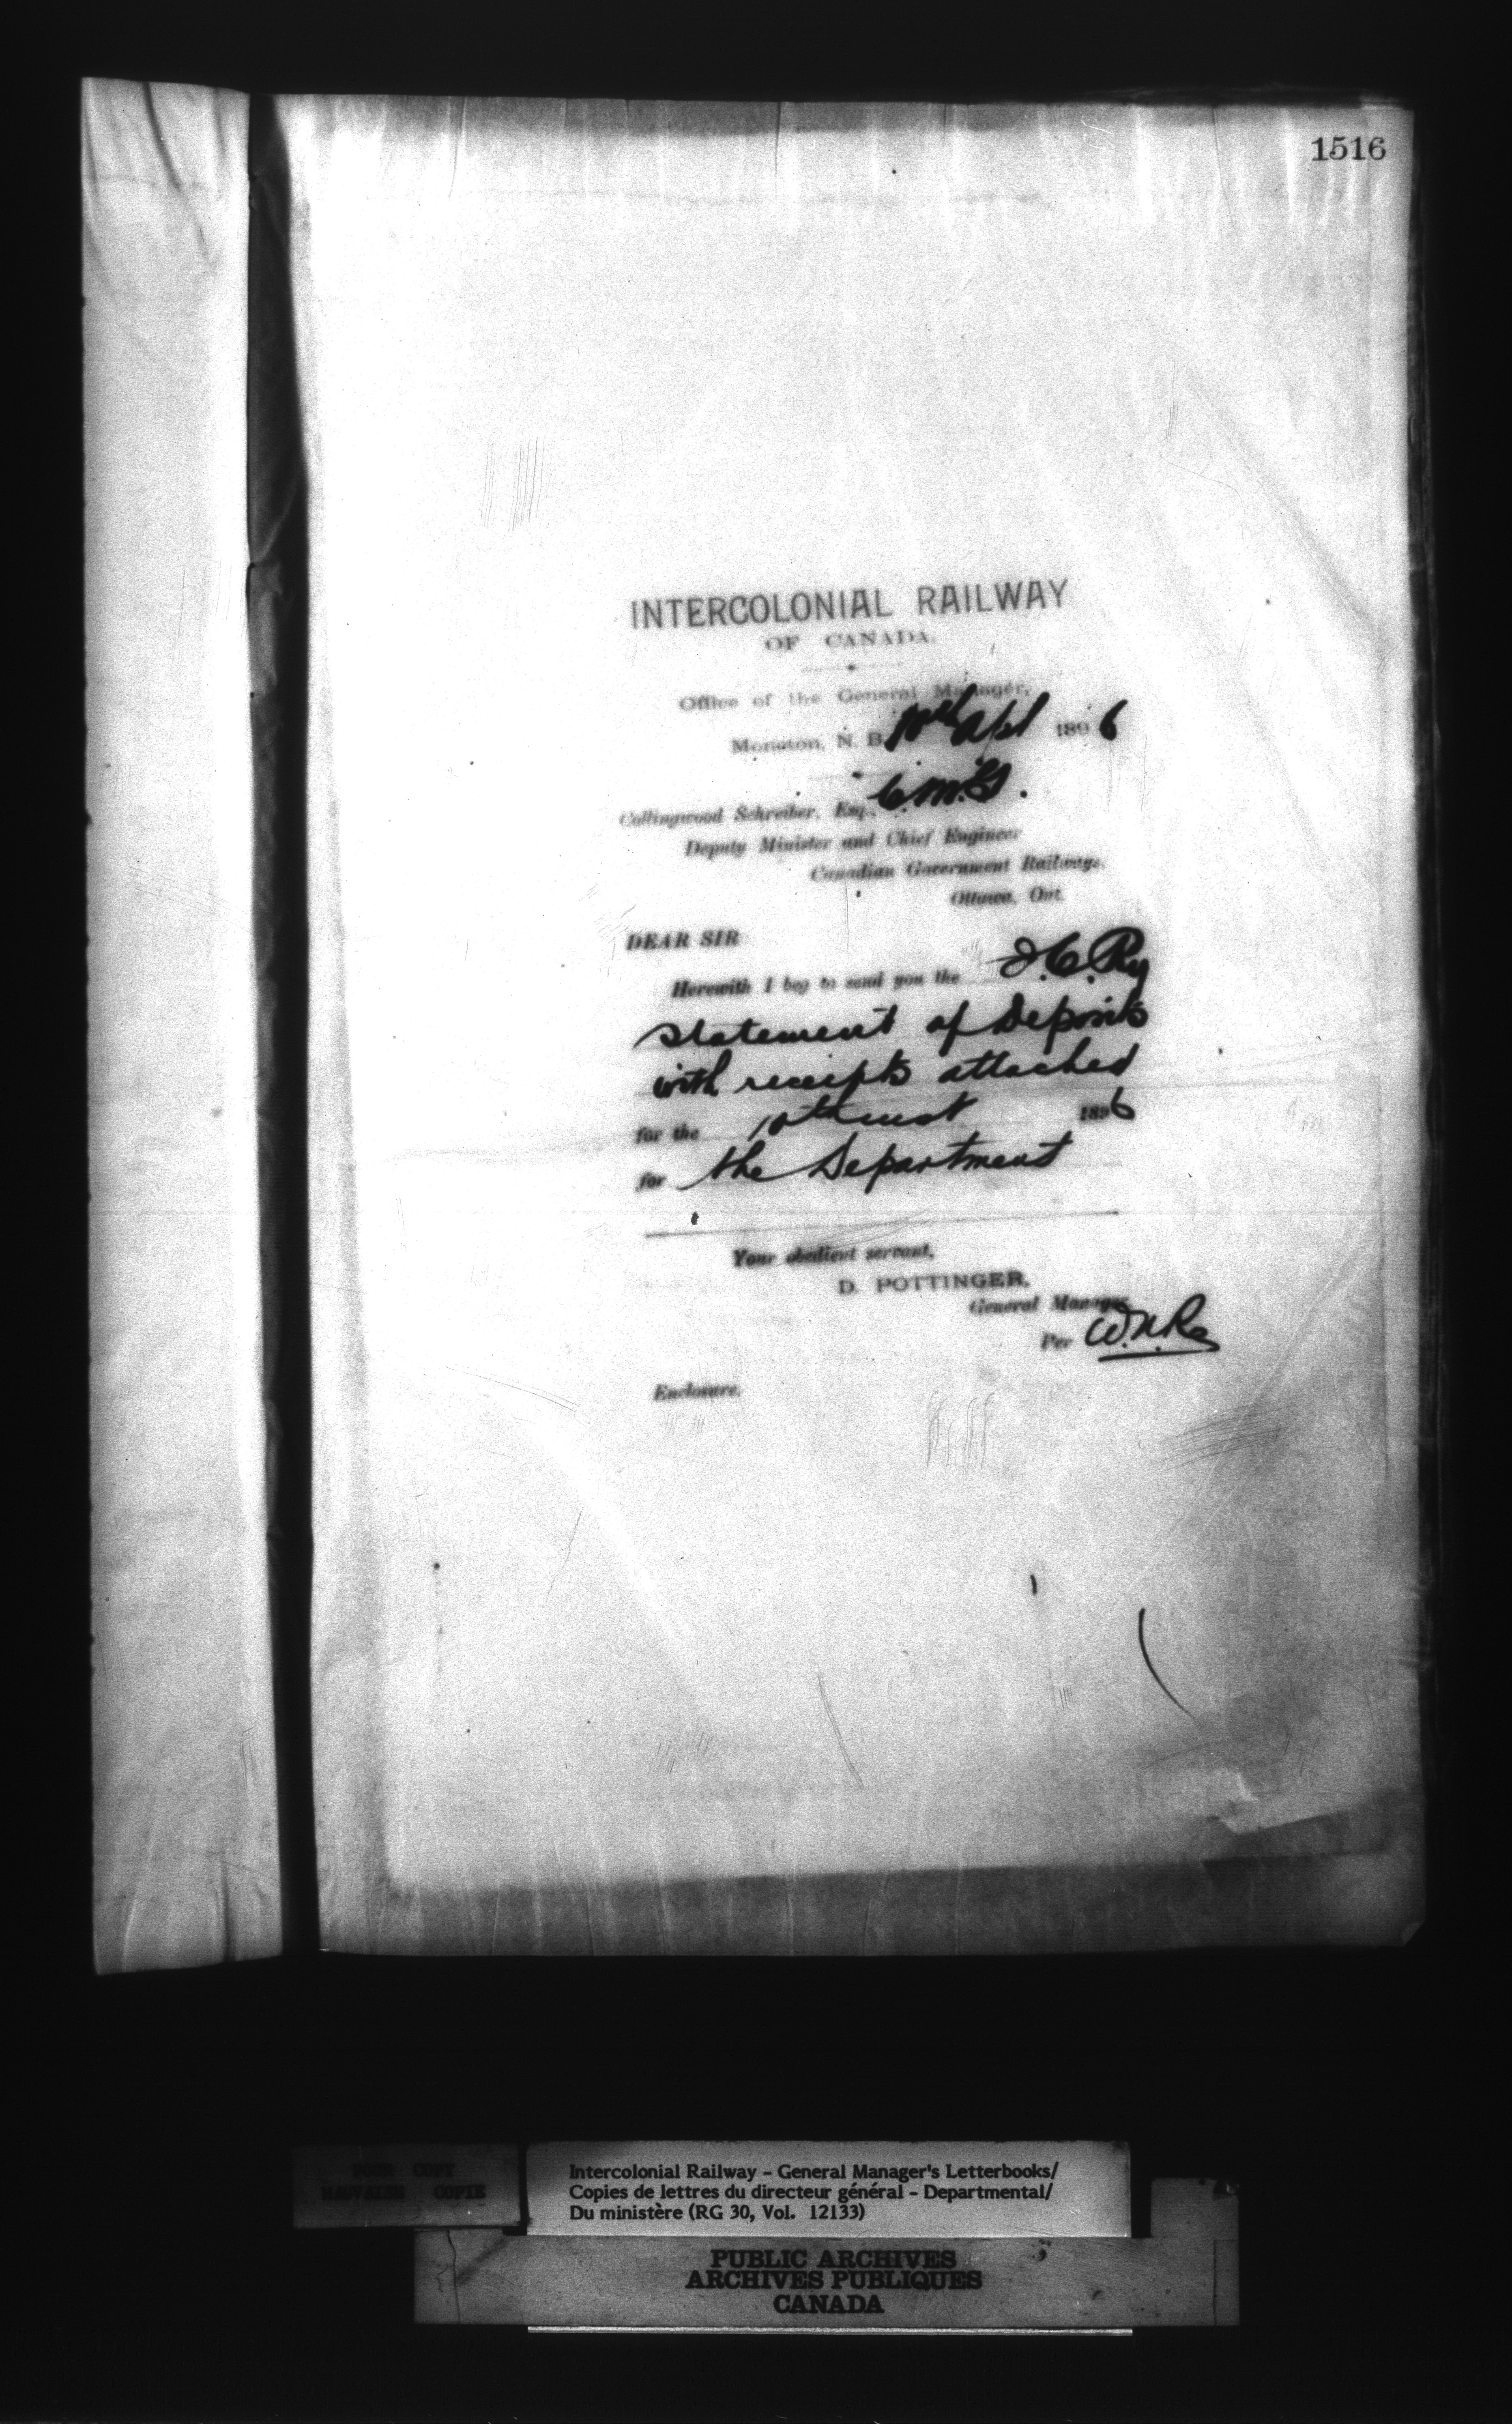 1516
INTERCOLONIAL RAILWAY
OF CANADA.
Office of the General Manager,
Moncton, N. B. 10th Apl 1896
Collingwood Schreiber, Esq., C.M.G.
Deputy Minister and Chief Engineer
Canadian Government Railways,
Ottawa, Ont.
DEAR SIR
Herewith I beg to send you the I.C.Ry
Statement of Deposits
with receipts attached
for the 10th inst 1896
for the Department
Your obedient servant,
D. POTTINGER,
General Manager
Per
Enclosure.
POOR COPY
MAUVAISE COPIE
Intercolonial Railway - General Manager's Letterbooks/
Copies de lettres du directeur général - Departmental/
Du ministère (RG 30, Vol. 12133)
PUBLIC ARCHIVES
ARCHIVES PUBLIQUES
CANADA